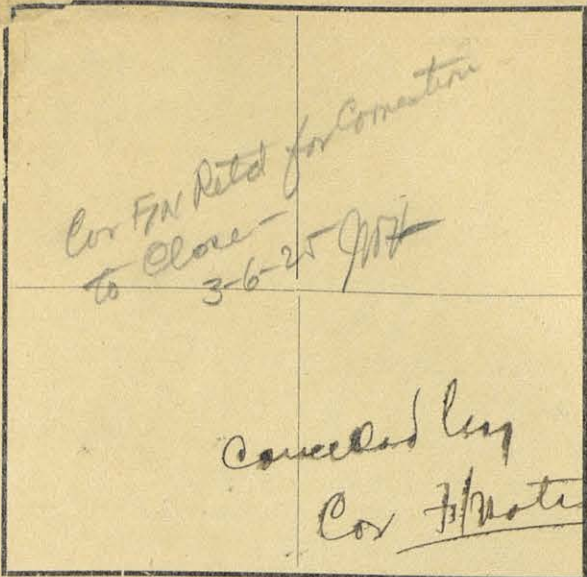 Cor F/N Retd for Correction
to Close -
3-6-25
Cancelled by
Cor F/Note